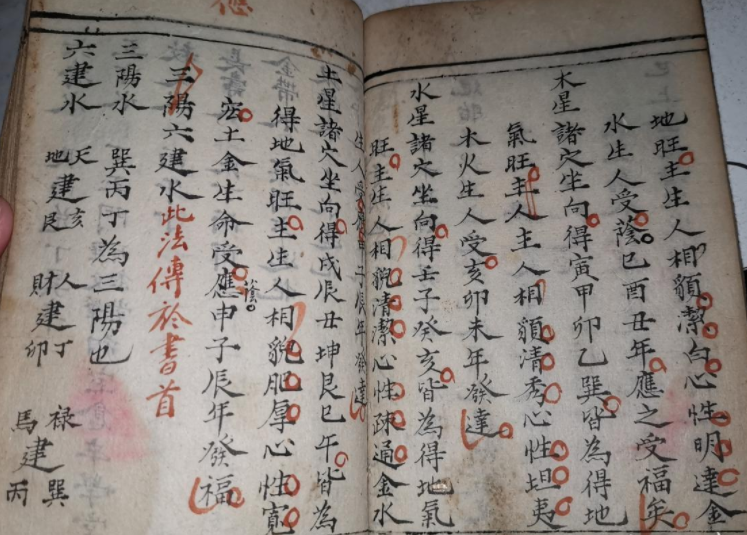 地旺主生人相貌潔白心性明達金
水生人受蔭巳酉丑年應之受福矣
木星諸穴坐向得寅甲卯乙巽皆為得地
氣旺主人主人相貌清秀心性坦夷
木火生人受亥卯未年發達
水星諸穴坐向得壬子癸亥皆為得地氣
旺主生人相貌清潔心性疎通金水
生人受應申子辰年發達
土星諸穴坐向得戌辰丑坤艮巳午皆為
得地氣旺主生人相貌肥厚心性寬
宏土金生命受蔭應申子辰年發福
三陽六建水此法傳於書首
三陽水 巽丙丁為三陽也
六建水 天建亥 地建艮 人建丁 財建卯 祿建巽 馬建丙